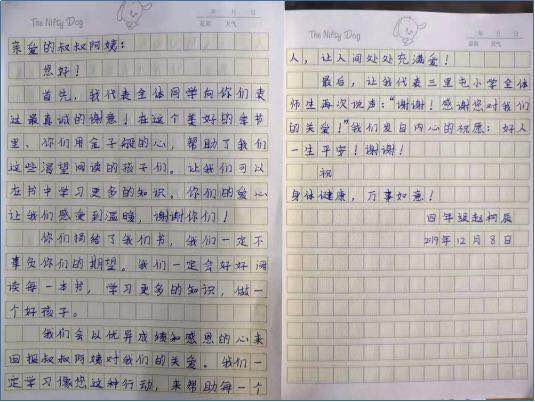 The Nifty Dog
年 月 日
星期 天气
亲爱的叔叔阿姨：
您好！
首先，我代表全体同学向你们表
达最真诚的谢意！在这个美好的季节
里、你们用金子般的心，帮助了我们
这些渴望阅读的孩子们。让我们可以
在书中学习更多的知识。你们的爱心
让我们感受到温暖，谢谢你们！
你们捐给了我们书，我们一定不
辜负你们的期望。我们一定会好好阅
读每一本书，学习更多的知识，做一
个好孩子。
我们会以优异成绩和感恩的心来
回报叔叔阿姨对我们的关爱。我们一
定学习像您这种行动，来帮助每一个
The Nifty Dog
年 月 日
星期 天气
人，让人间处处充满爱！
最后，让我代表三里屯小学全体
师生再次说声："谢谢！感谢您对我们
的关爱！"我们发自内心的祝愿：好人
一生平安！谢谢！
祝
身体健康，万事如意！
四年级赵柯辰
2019年12月8日